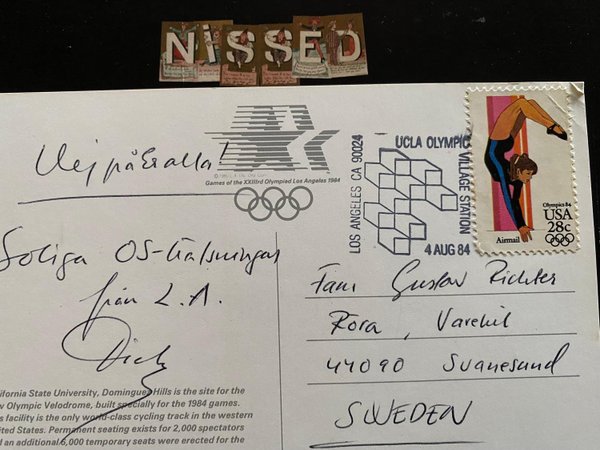 NiSSED
Games of the XXIIIrd Olympiad Los Angeles 1984
Hej på Er alla!
Soliga OS-hälsningar
från L.A.
Dick
ifornia State University, Dominguez Hills is the site for the
w Olympic Velodrome, built specially for the 1984 games.
s facility is the only world-class cycling track in the western
ited States. Permanent seating exists for 2,000 spectators
d an additional 6,000 temporary seats were erected for the
LOS ANGELES CA 90024
UCLA OLYMPIC
VILLAGE STATION
4 AUG 84
Olympics 84
USA
28c
Airmail
Fam Gustav Richter
Röra, Varekil
44090 Svanesund
SWEDEN